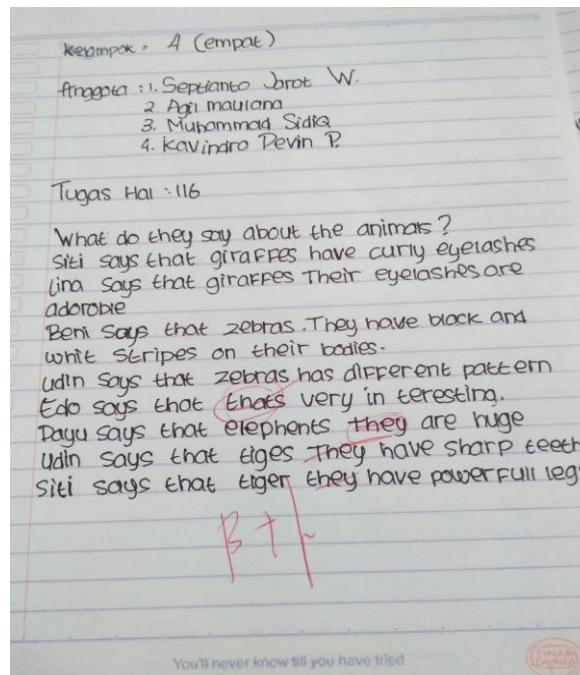 Kelompok : 4 (empat)
Anggota : 1. Septianto Jarot W.
2. Agil maulana
3. Muhammad Sidiq
4. Kavindro Devin P.
Tugas Hal : 116
What do they say about the animals ?
Siti says that giraffes have curly eyelashes
Lina says that giraffes Their eyelashes are
adorable
Beni Says that zebras. They have black and
whit stripes on their bodies.
Udin says that zebras has different pattern
Edo says that thats very in teresting.
Dayu says that elephents they are huge
Udin says that tiges They have sharp teeth
Siti says that tiger they have powerfull leg
B+
You'll never know till you have tried
SINAR DUNIA